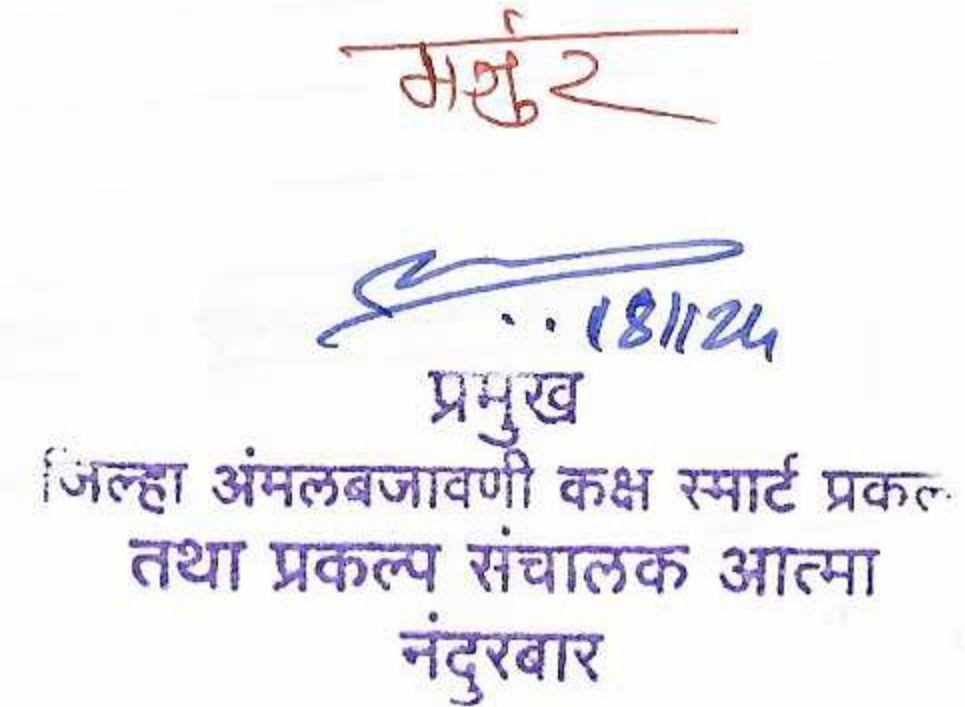 मंजुर
18/1/24
प्रमुख
जिल्हा अंमलबजावणी कक्ष स्मार्ट प्रकल
तथा प्रकल्प संचालक आत्मा
नंदुरबार